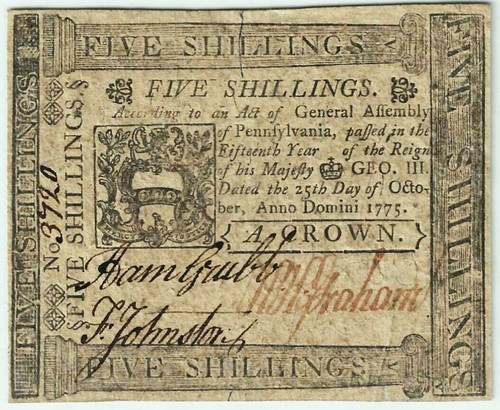 FIVE SHILLINGS
FIVE SHILLINGS
FIVE SHILLINGS
No 3720
FIVE SHILLINGS,
FIVE SHILLINGS.
According to an Act of General Assembly
of Pennsylvania, passed in the
Fifteenth Year of the Reign
of his Majesty GEO. III.
Dated the 25th Day of Octo-
ber, Anno Domini 1775.
A CROWN.
Grubb
Graham
Johnston
FIVE SHILLINGS